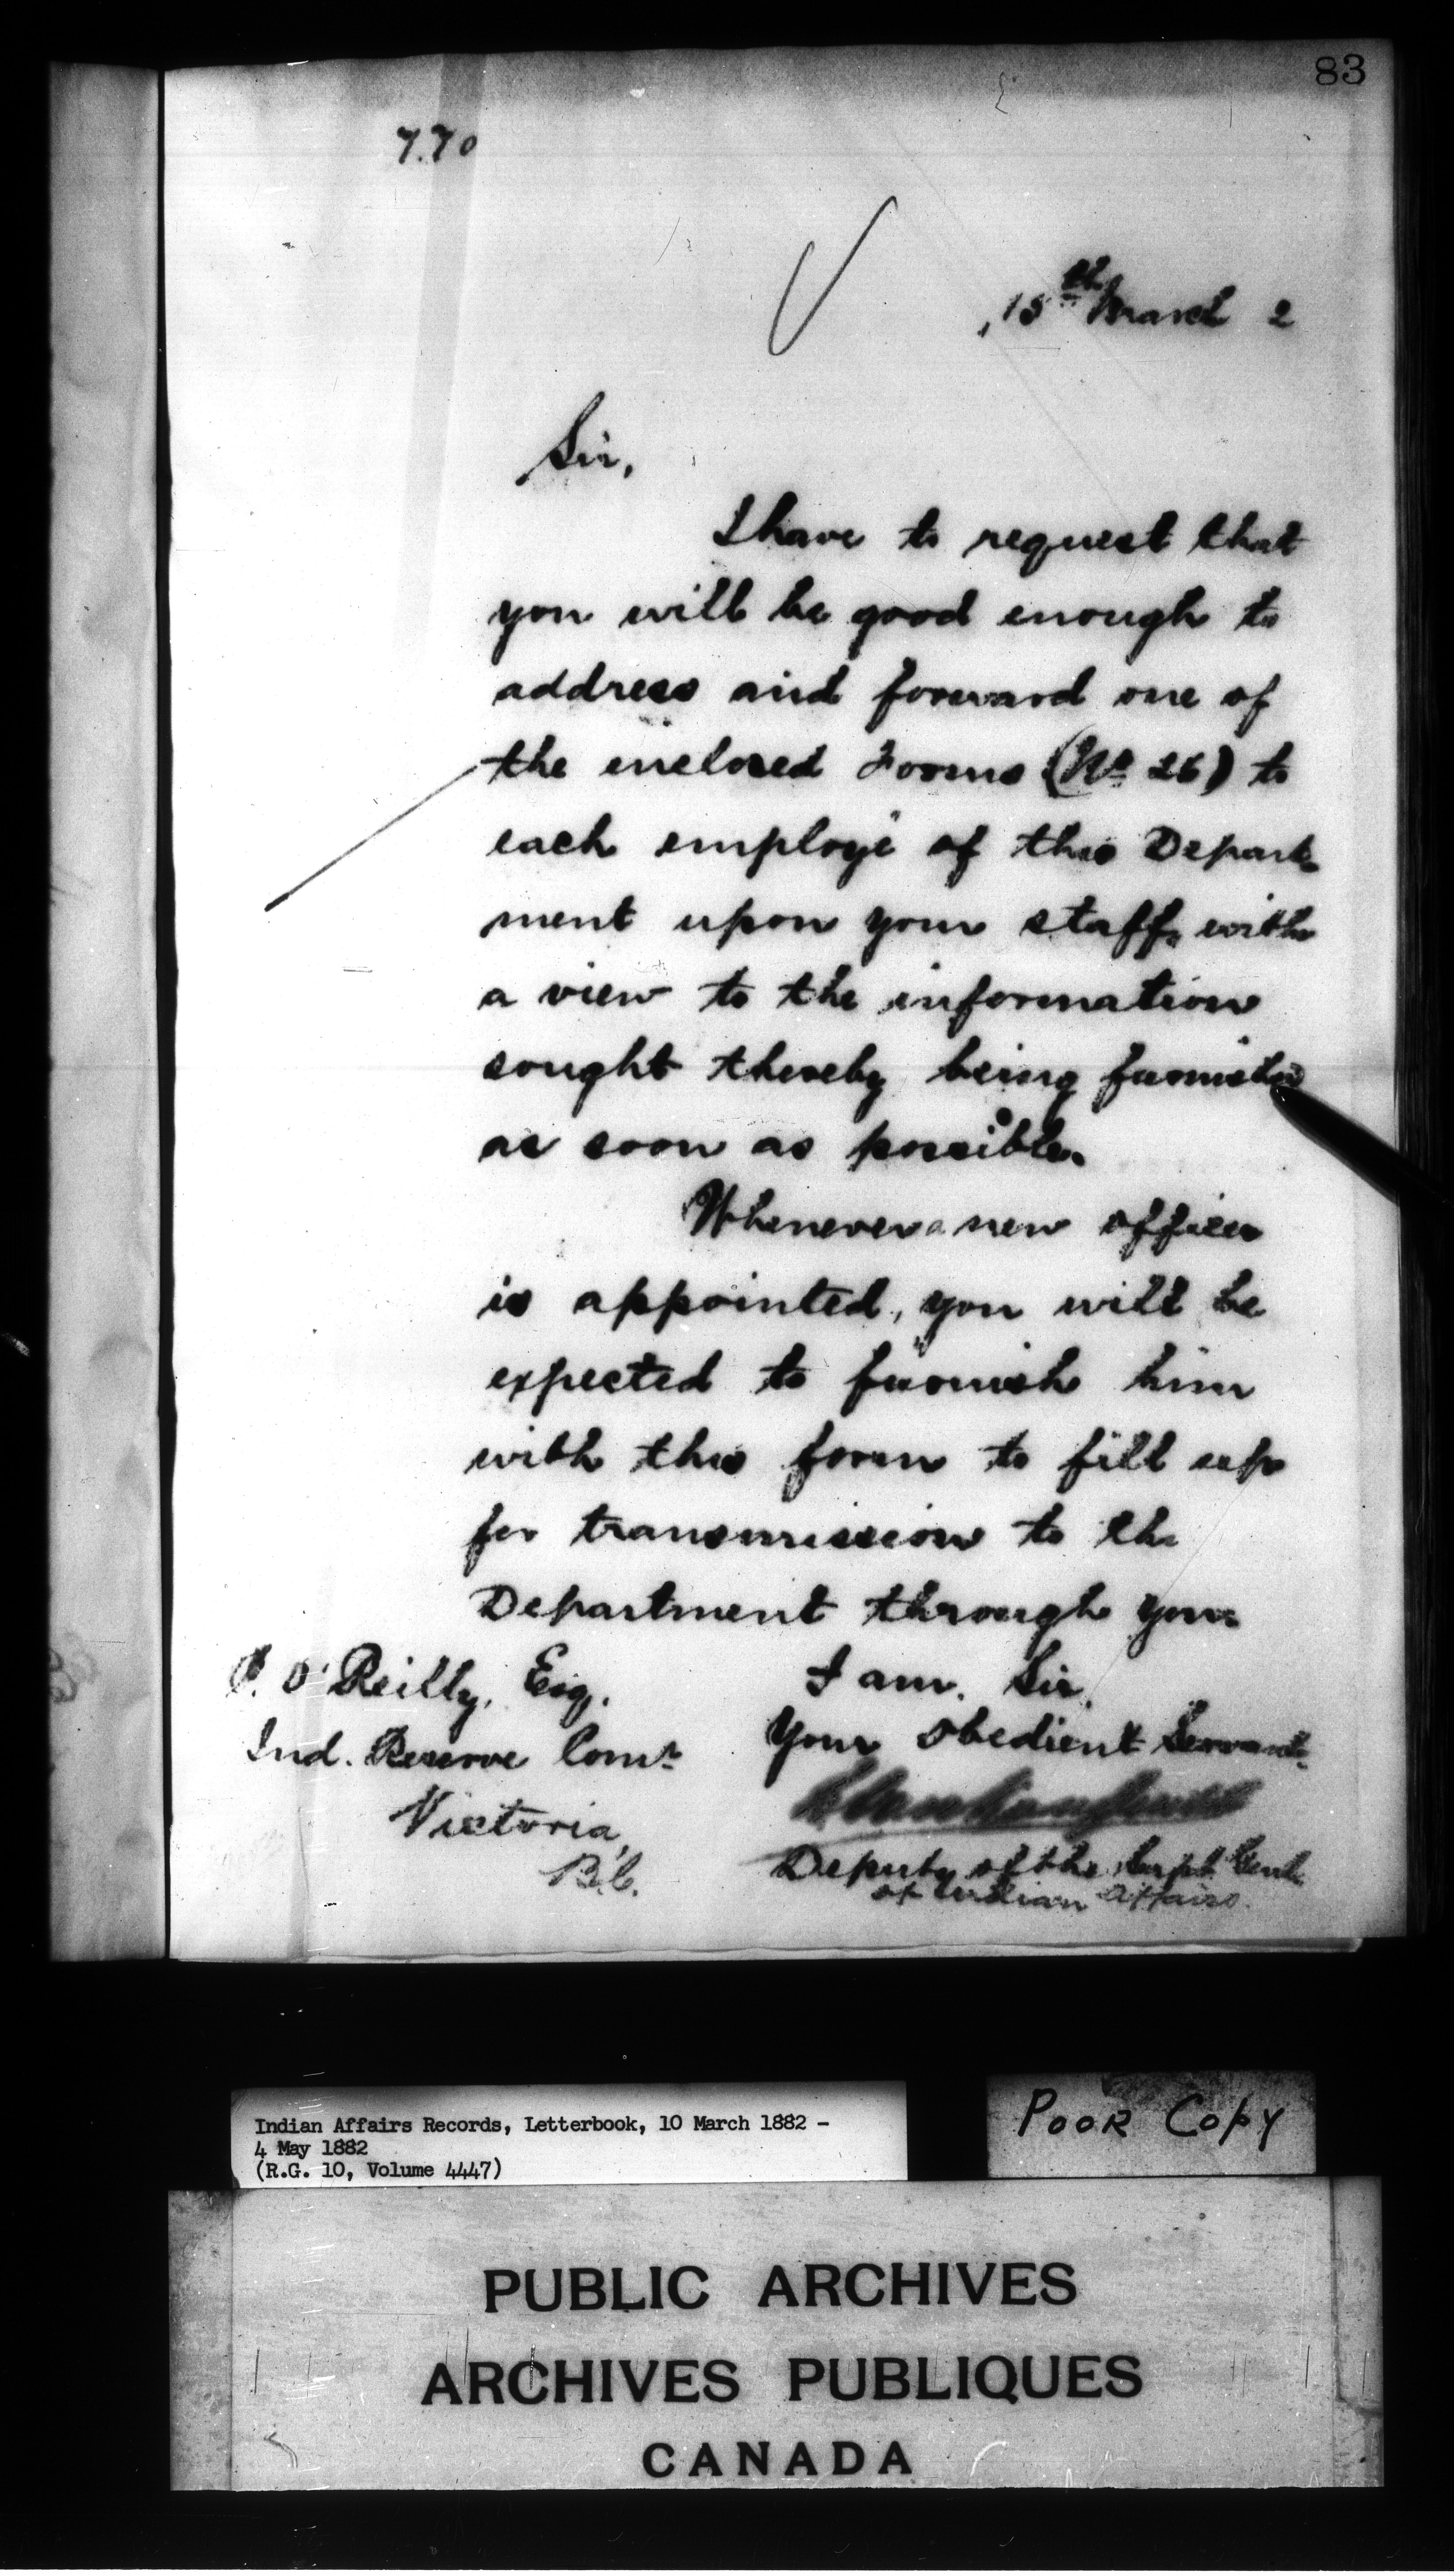 83
7.70
15th March 2
Sir,
I have to request that
you will be good enough to
address and forward one of
the enclosed Forms (No 26) to
each employé of this Depart-
ment upon your staff, with
a view to the information
sought thereby being furnished
as soon as possible.
Whenever a new officer
is appointed, you will be
expected to furnish him
with this form to fill up
for transmission to the
Department through you.
I am, Sir,
Your obedient Servant,
P. O'Reilly, Esq.
Ind. Reserve Comr
Victoria,
B.C.
Deputy of the Supt. Genl.
of Indian Affairs.
Indian Affairs Records, Letterbook, 10 March 1882 -
4 May 1882
(R.G. 10, Volume 4447)
POOR COPY
PUBLIC ARCHIVES
ARCHIVES PUBLIQUES
CANADA